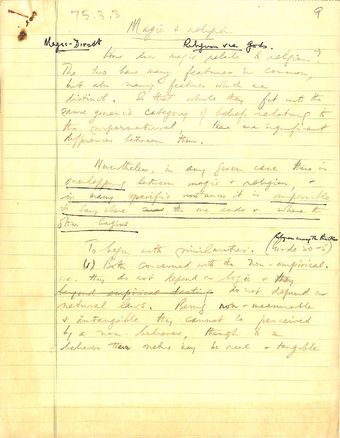 75.3.3
9
Magic & religion
Magic - Direct
Religion via Gods.
How does magic relate to religion?
The two have many features in common,
but also many features which are
distinct. So that while they fit into the
same generic category of beliefs relating to
the supernatural, there are significant
differences between them.
Nevertheless, in any given case there is
overlapping between magic & religion, &
in many specific instances it is impossible
to say where the one ends & where the
other begins
To begin with similarities.
(1) Both concerned with the non-empirical.
i.e. they do not depend on logic & they
beyond empirical testing do not depend on
natural laws. Being non-measurable
& intangible they cannot be perceived
by a non-believer, though to a
believer may be real & tangible